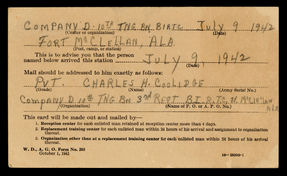 COMPANY D-10TH TNG BN BIRTC JULY 9 1942
(Center or organization) (Date)
FORT McCLELLAN, ALA
(Post, camp, or station)
This is to advise you that the person
named below arrived this station JULY 9 1942
(Date)
Mail should be addressed to him exactly as follows:
PVT. CHARLES H. COOLIDGE
(Grade) (Name) (Army Serial Number)
COMPANY D 10TH TNG BN 3RD REGT B.I.R.T.C. FT. McCLELLAN
ALA
(Organization) (Name of P. O. or A. P. O.)
This card will be made out and mailed by—
1. Reception center for each enlisted man retained at reception center more than 4 days.
2. Replacement training center for each enlisted man within 24 hours of his arrival and assignment to organization
therein.
3. Organization other than at a replacement training center for each enlisted man within 24 hours of his arrival
thereat.
W. D., A. G. O. Form No. 203
October 1, 1941